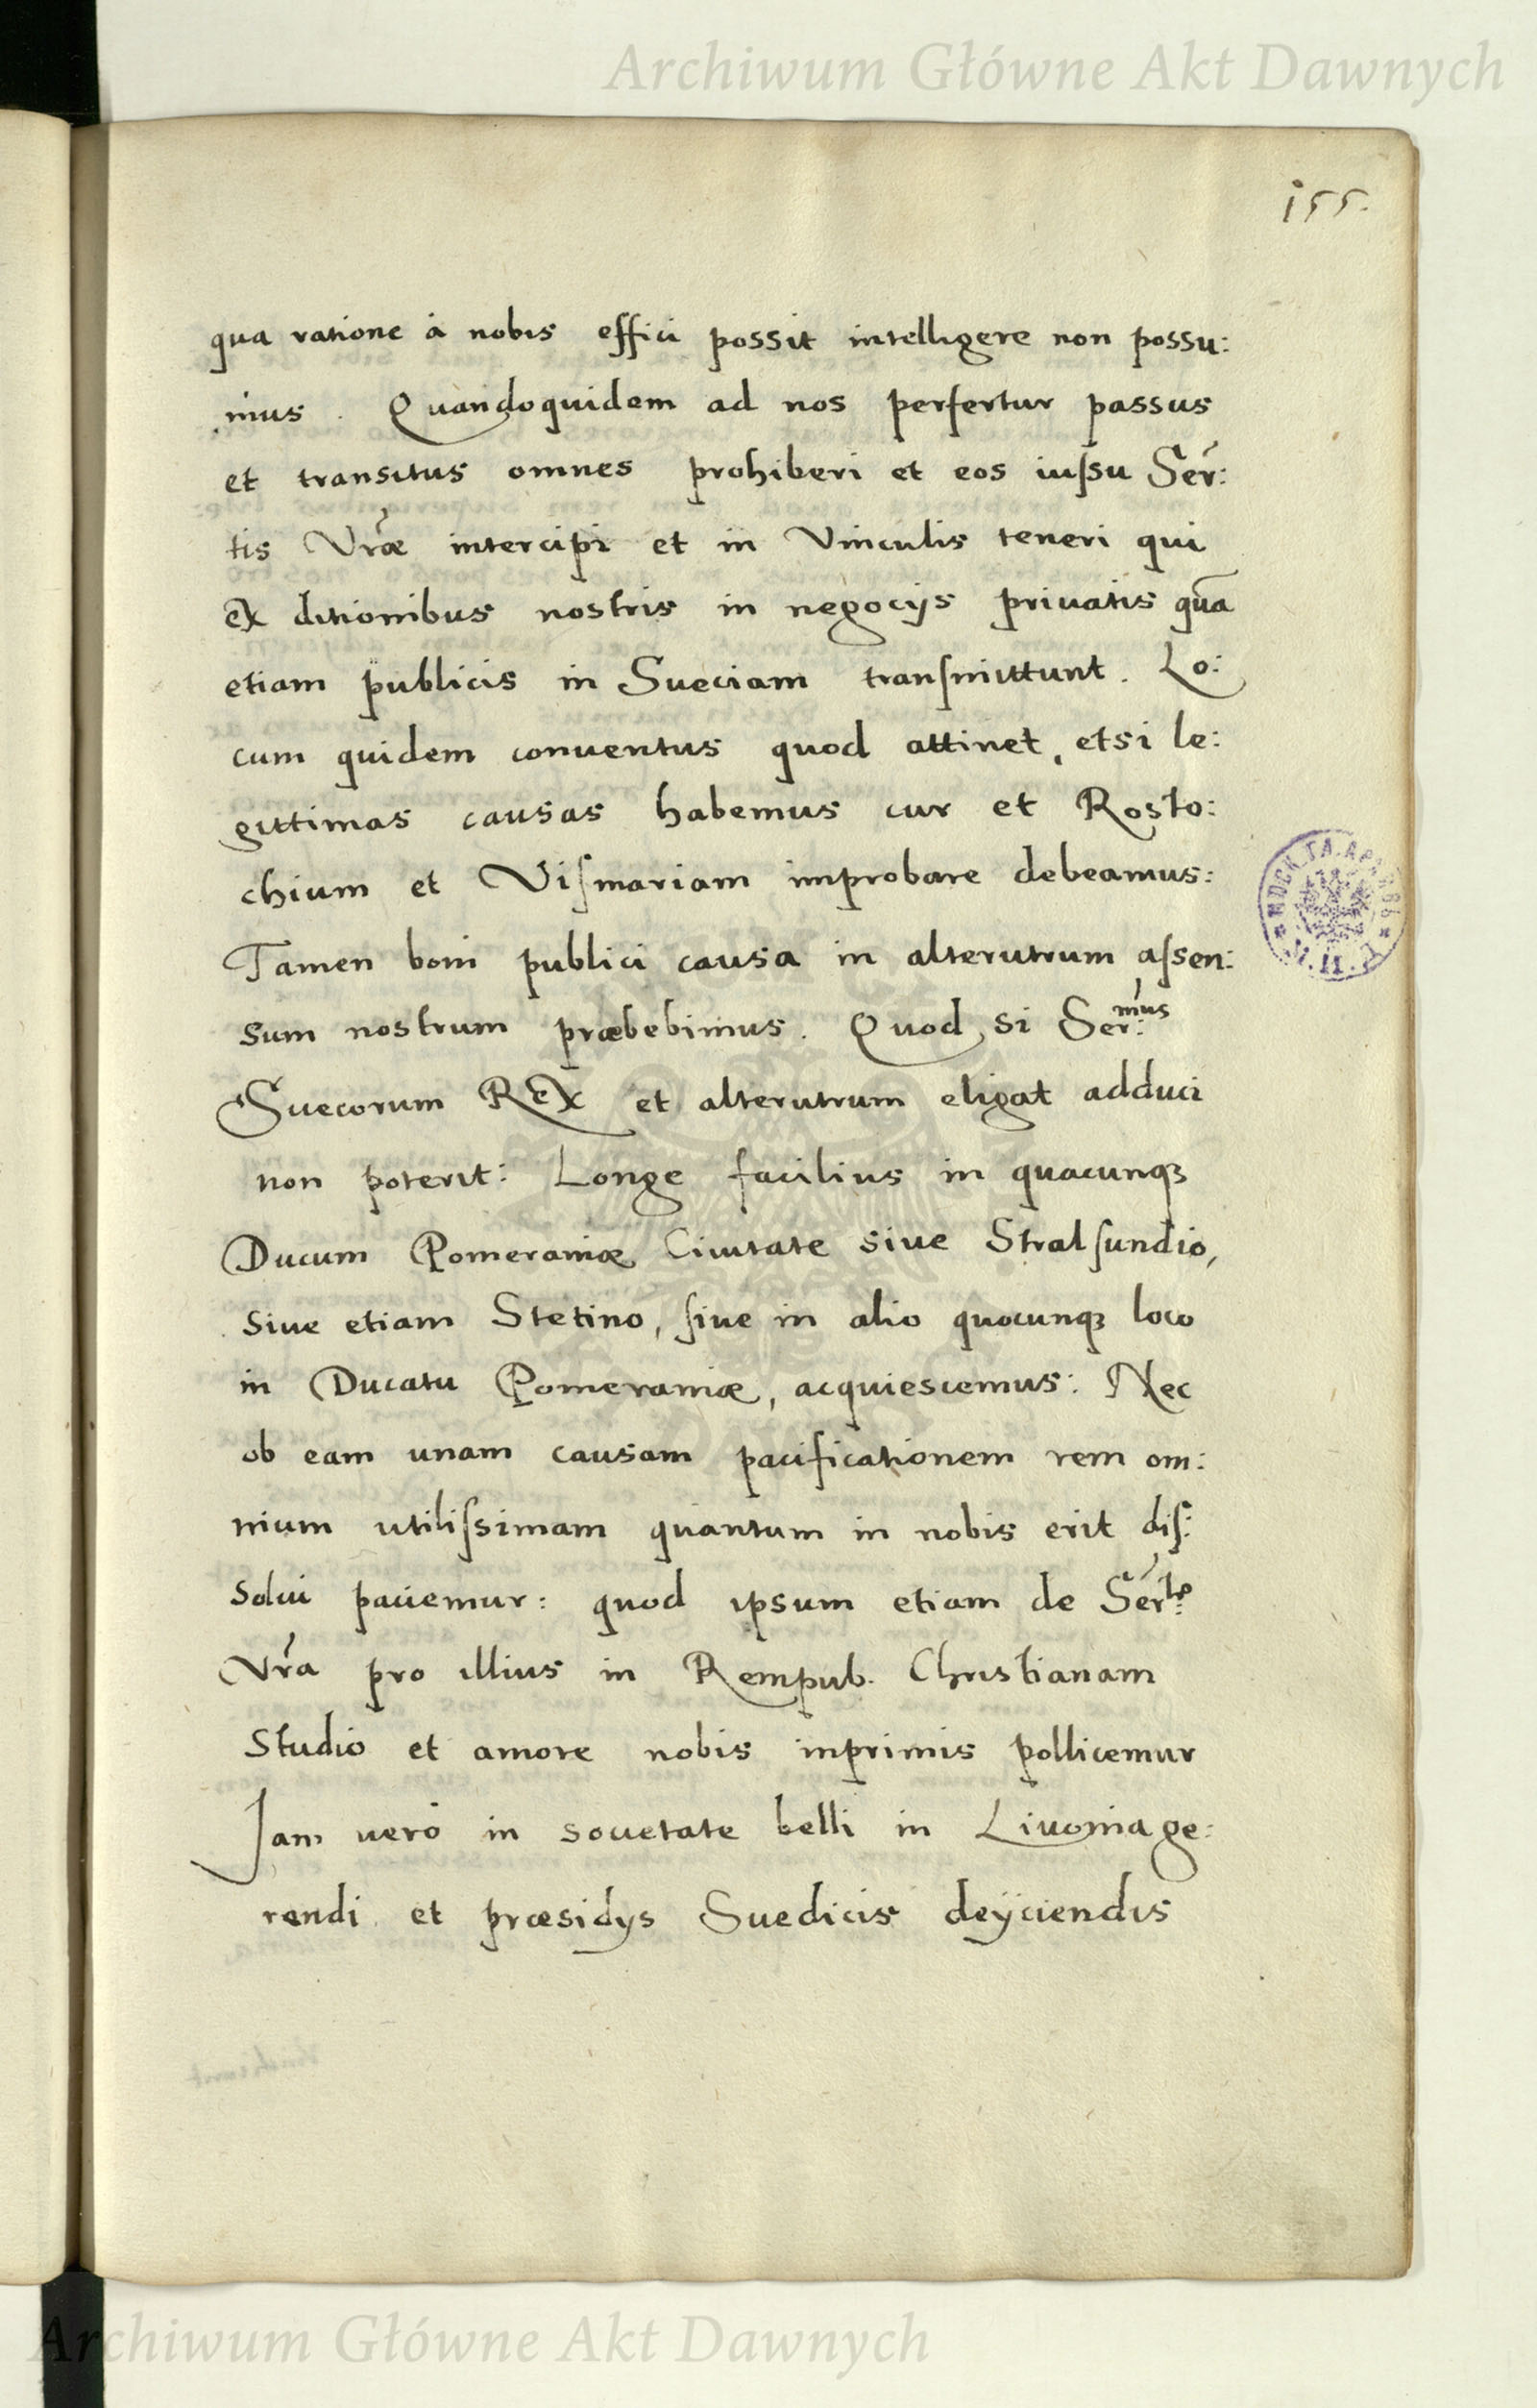 Archiwum Główne Akt Dawnych
i55.
qua ratione à nobis effici possit intelligere non possu:
mus. Quandoquidem ad nos perfertur passus
et transitus omnes prohiberi et eos iuſsu Ser:
tis Vr̃æ intercipi et in Vinculis teneri qui
ex ditionibus nostris in negocijs priuatis qua
etiam publicis in Sueciam tranſmittunt. Lo:
cum quidem conuentus quod attinet, etsi le:
gittimas causas habemus cur et Rosto:
chium et Viſmariam improbare debeamus:
Tamen boni publici causa in alterutrum aſsen:
sum nostrum præbebimus. Quod si Ser:mus
Suecorum Rex et alterutrum eligat adduci
non poterit: Longe facilius in quacunqꝫ
Ducum Pomeraniæ Ciuitate siue Stralſundio,
siue etiam Stetino, ſiue in alio quocunqꝫ loco
in Ducatu Pomeraniæ, acquiescemus: Nec
ob eam unam causam pacificationem rem om:
nium utiliſsimam quantum in nobis erit diſ:
solui paciemur: quod ipsum etiam de Ser:te
Vr̃a pro illius in Rempub. Christianam
studio et amore nobis inprimis pollicemur
Jam uerò in societate belli in Liuonia ge:
rendi et præsidijs Suedicis deijciendis
Archiwum Główne Akt Dawnych